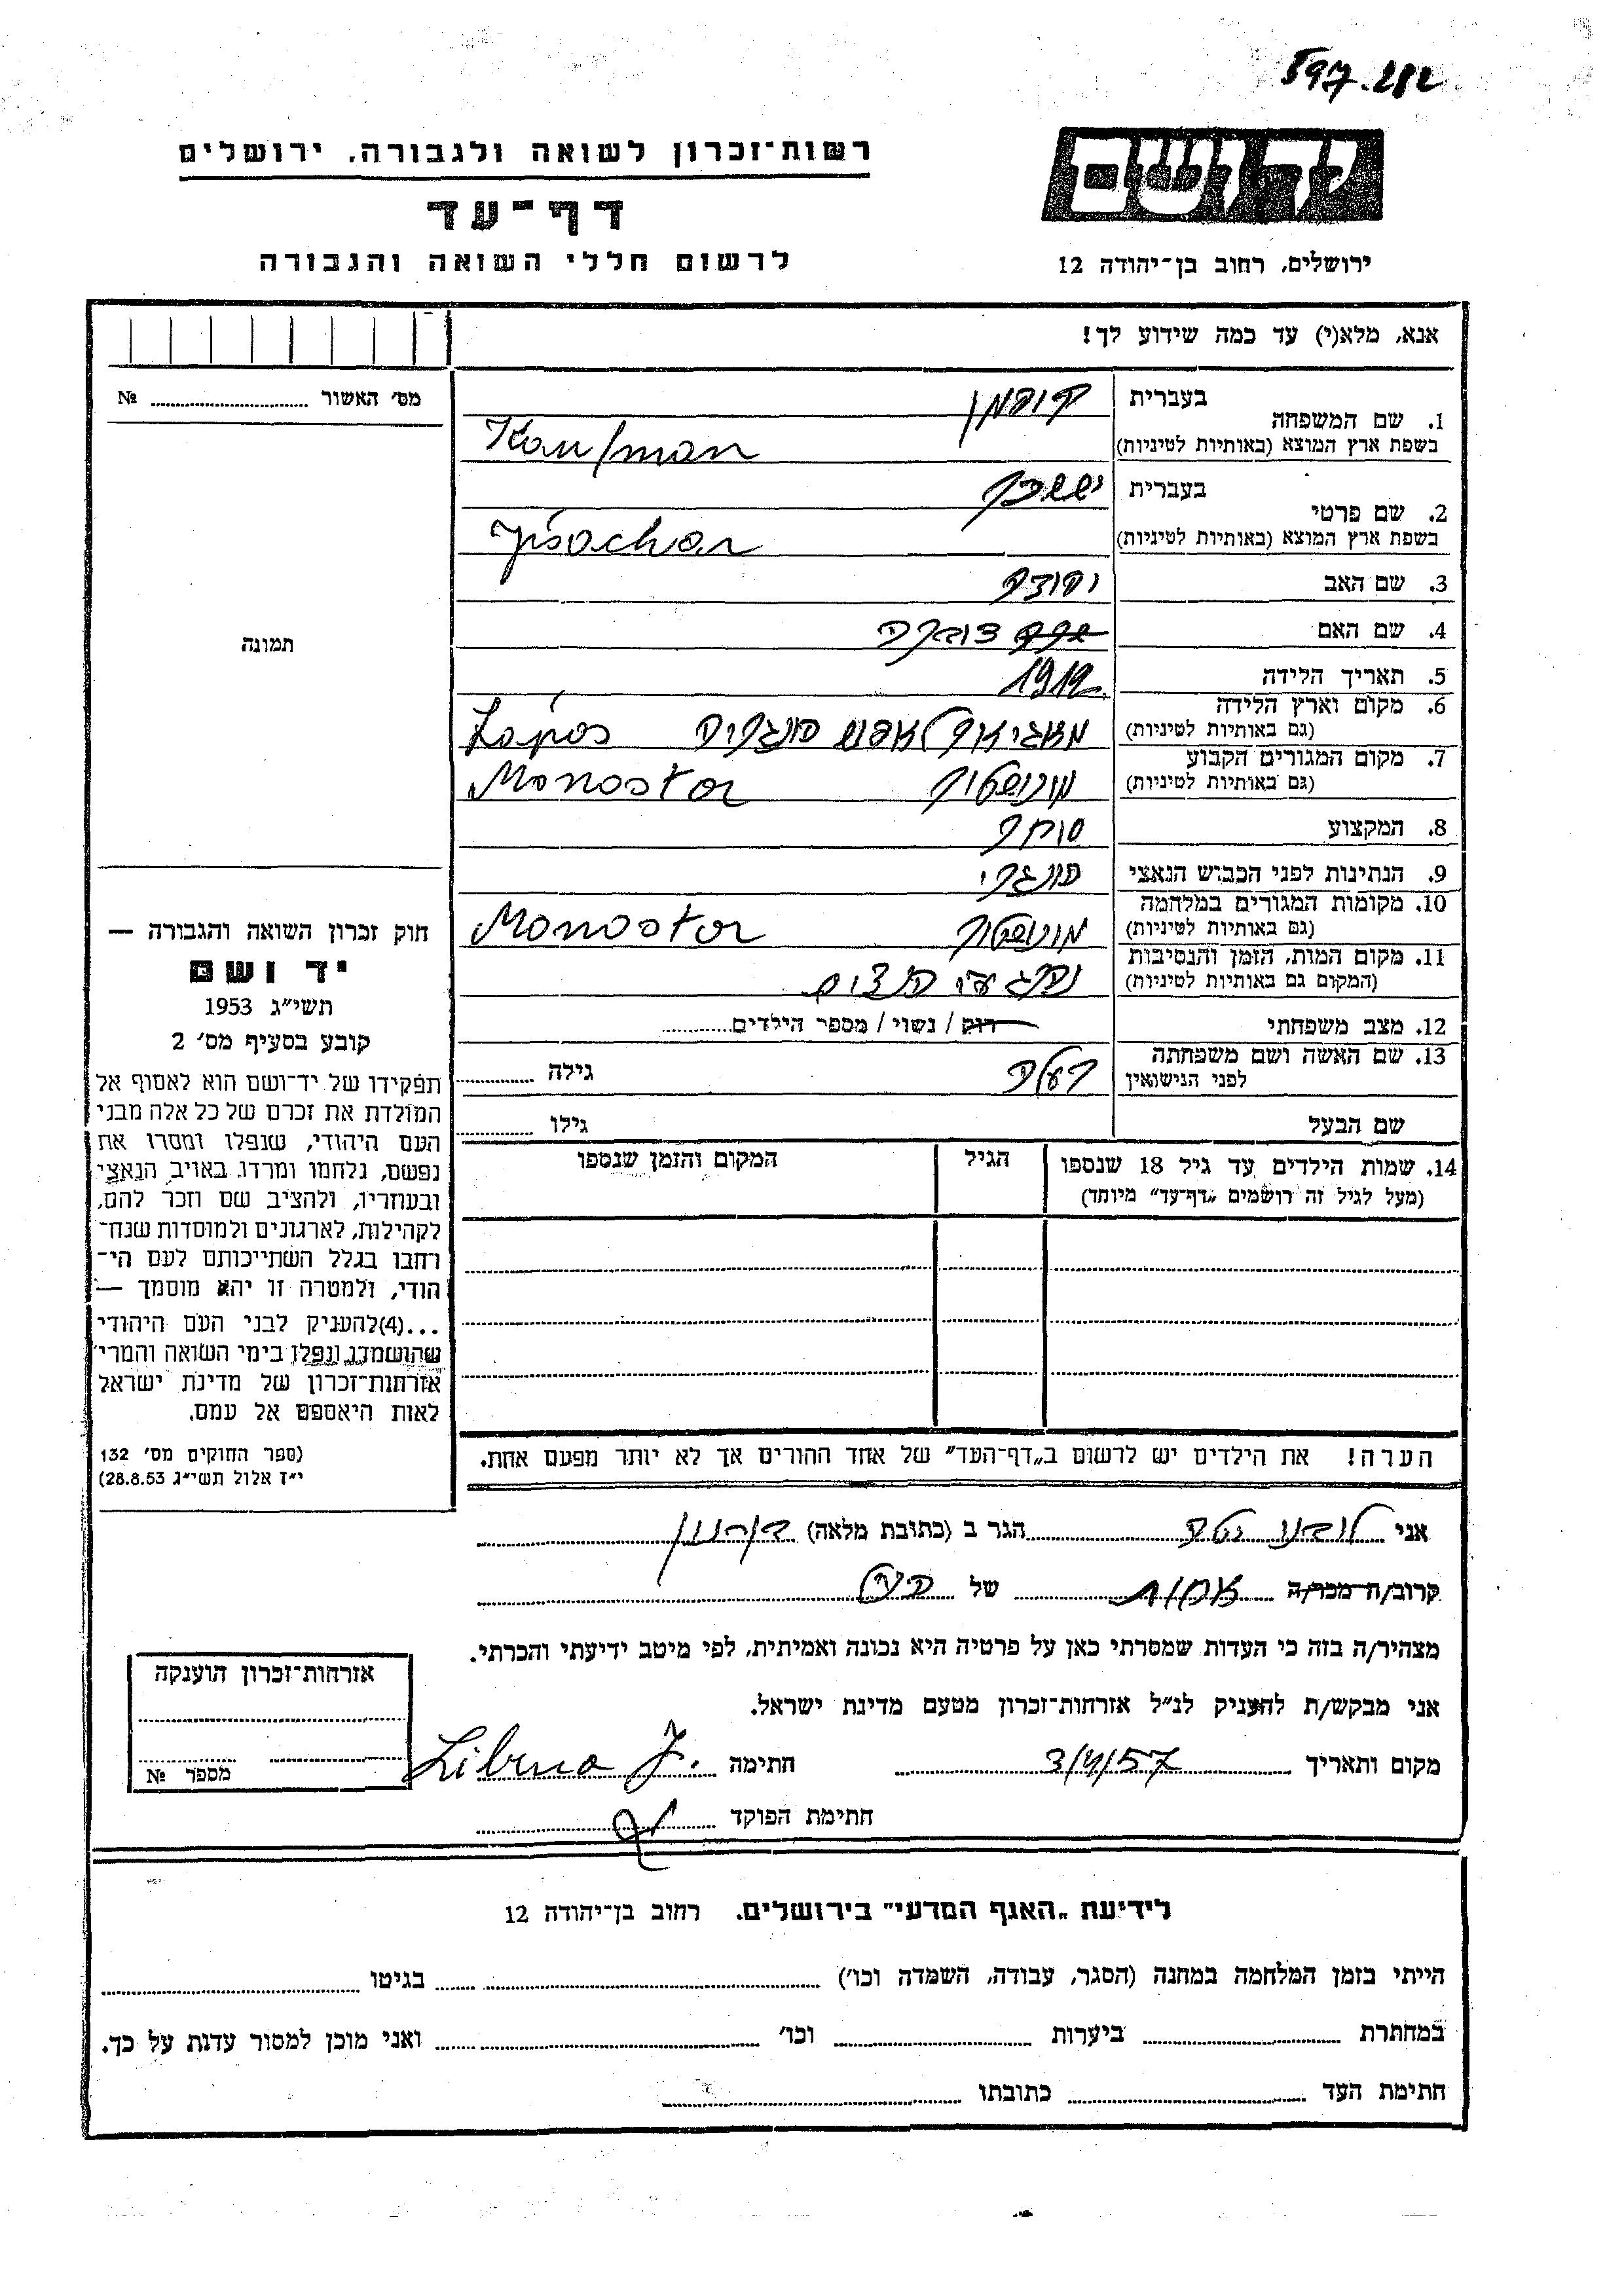 597.282
רשות-זכרון לשואה ולגבורה, ירושלים
יד ושם
דף-עד
לרשום חללי השואה והגבורה
ירושלים, רחוב בן-יהודה 12
אנא, מלא(י) עד כמה שידוע לך!
מס׳ האשור № 
1. שם המשפחה
בעברית קופמן
בשפת ארץ המוצא (באותיות לטיניות) Kaufman
2. שם פרטי
בעברית יששכר
בשפת ארץ המוצא (באותיות לטיניות) Jisachar
3. שם האב יהודה
4. שם האם
5. תאריך הלידה 1912
6. מקום וארץ הלידה
(גם באותיות לטיניות) לאפוש הונגריה Lápos
7. מקום המגורים הקבוע
(גם באותיות לטיניות) מונושטור Monostor
8. המקצוע סוחר
9. הנתינות לפני הכבוש הנאצי הונגרי
10. מקומות המגורים במלחמה
(גם באותיות לטיניות) מונושטור Monostor
11. מקום המות, הזמן והנסיבות
(המקום גם באותיות לטיניות) נהרג ע״י הנאצים
12. מצב משפחתי רווק / נשוי / מספר הילדים
13. שם האשה ושם משפחתה
לפני הנישואין גילה
שם הבעל גילו
14. שמות הילדים עד גיל 18 שנספו
(מעל לגיל זה רושמים „דף-עד" מיוחד)
הגיל
המקום והזמן שנספו
הערה! את הילדים יש לרשום ב„דף-העד" של אחד ההורים אך לא יותר מפעם אחת.
תמונה
חוק זכרון השואה והגבורה —
יד ושם
תשי״ג 1953
קובע בסעיף מס׳ 2
תפקידו של יד-ושם הוא לאסוף אל
המולדת את זכרם של כל אלה מבני
העם היהודי, שנפלו ומסרו את
נפשם, נלחמו ומרדו באויב הנאצי
ובעוזריו, ולהציב שם וזכר להם,
לקהילות, לארגונים ולמוסדות שנח-
רחבו בגלל השתייכותם לעם הי-
הודי, ולמטרה זו יהא מוסמך —
...(4)להעניק לבני העם היהודי
שהושמדו ונפלו בימי השואה והמרי
אזרחות-זכרון של מדינת ישראל
לאות היאספם אל עמם.
(ספר החוקים מס׳ 132
י״ז אלול תשי״ג 28.8.53)
אני הגר ב (כתובת מלאה)
קרוב/ה מכר/ה אחות של הנ״ל
מצהיר/ה בזה כי העדות שמסרתי כאן על פרטיה היא נכונה ואמיתית, לפי מיטב ידיעתי והכרתי.
אני מבקש/ת להעניק לנ״ל אזרחות-זכרון מטעם מדינת ישראל.
מקום ותאריך חתימה
חתימת הפוקד
אזרחות-זכרון הוענקה
מספר №
לידיעת „האגף המדעי" בירושלים. רחוב בן-יהודה 12
הייתי בזמן המלחמה במחנה (הסגר, עבודה, השמדה וכו׳) בגיטו
במחתרת ביערות וכו׳ ואני מוכן למסור עדות על כך.
חתימת העד כתובתו